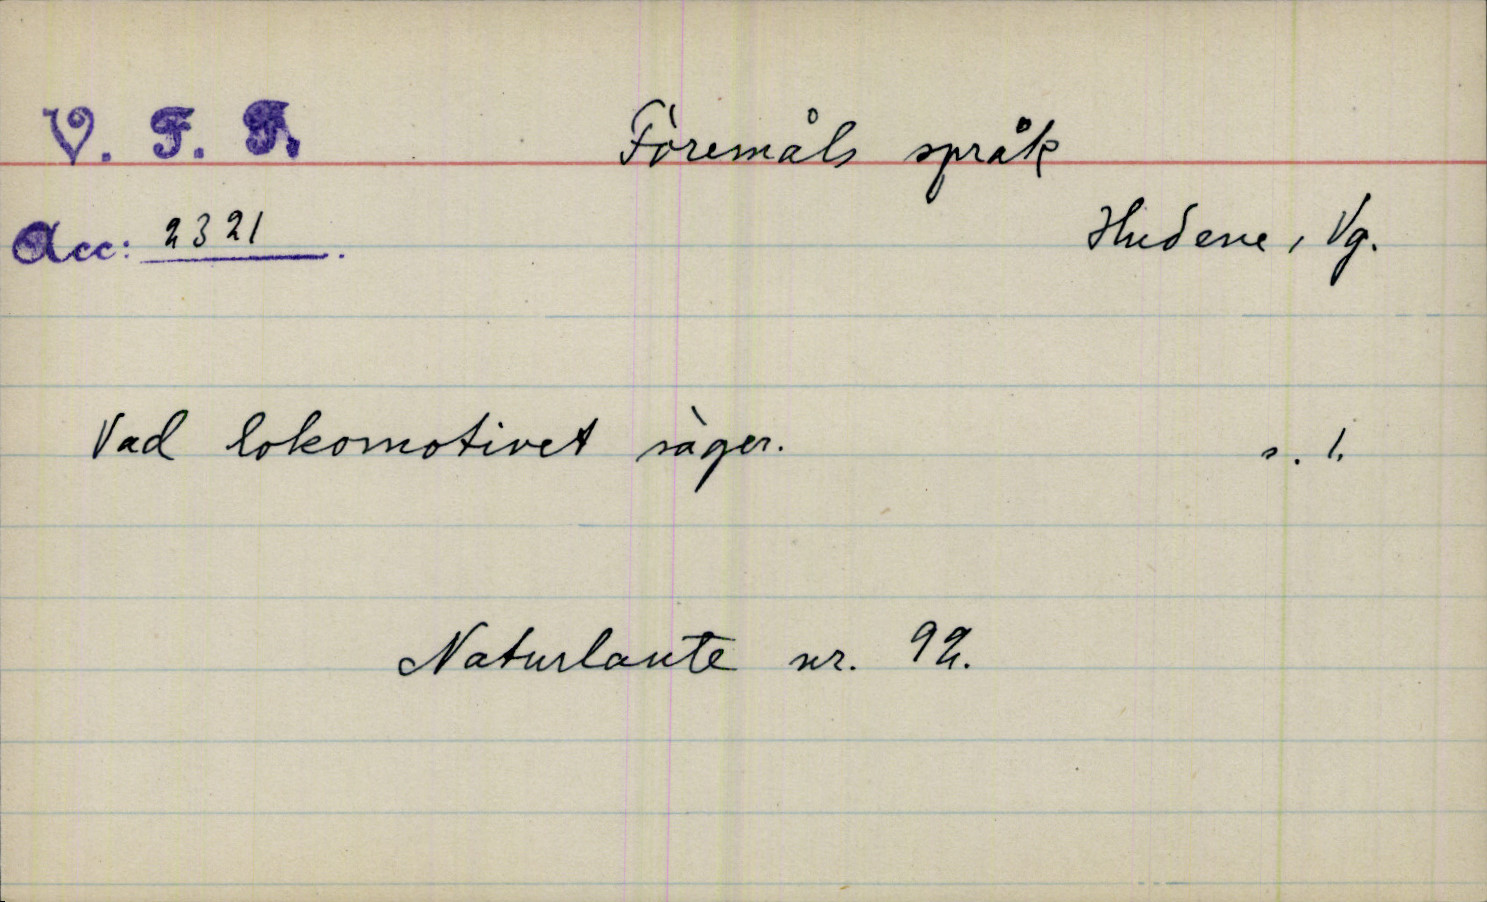 V. F. F. Föremåls språk
Acc: 2321. Hudene, Vg.
Vad lokomotivet säger. s. 1.
Naturlaute nr. 92.